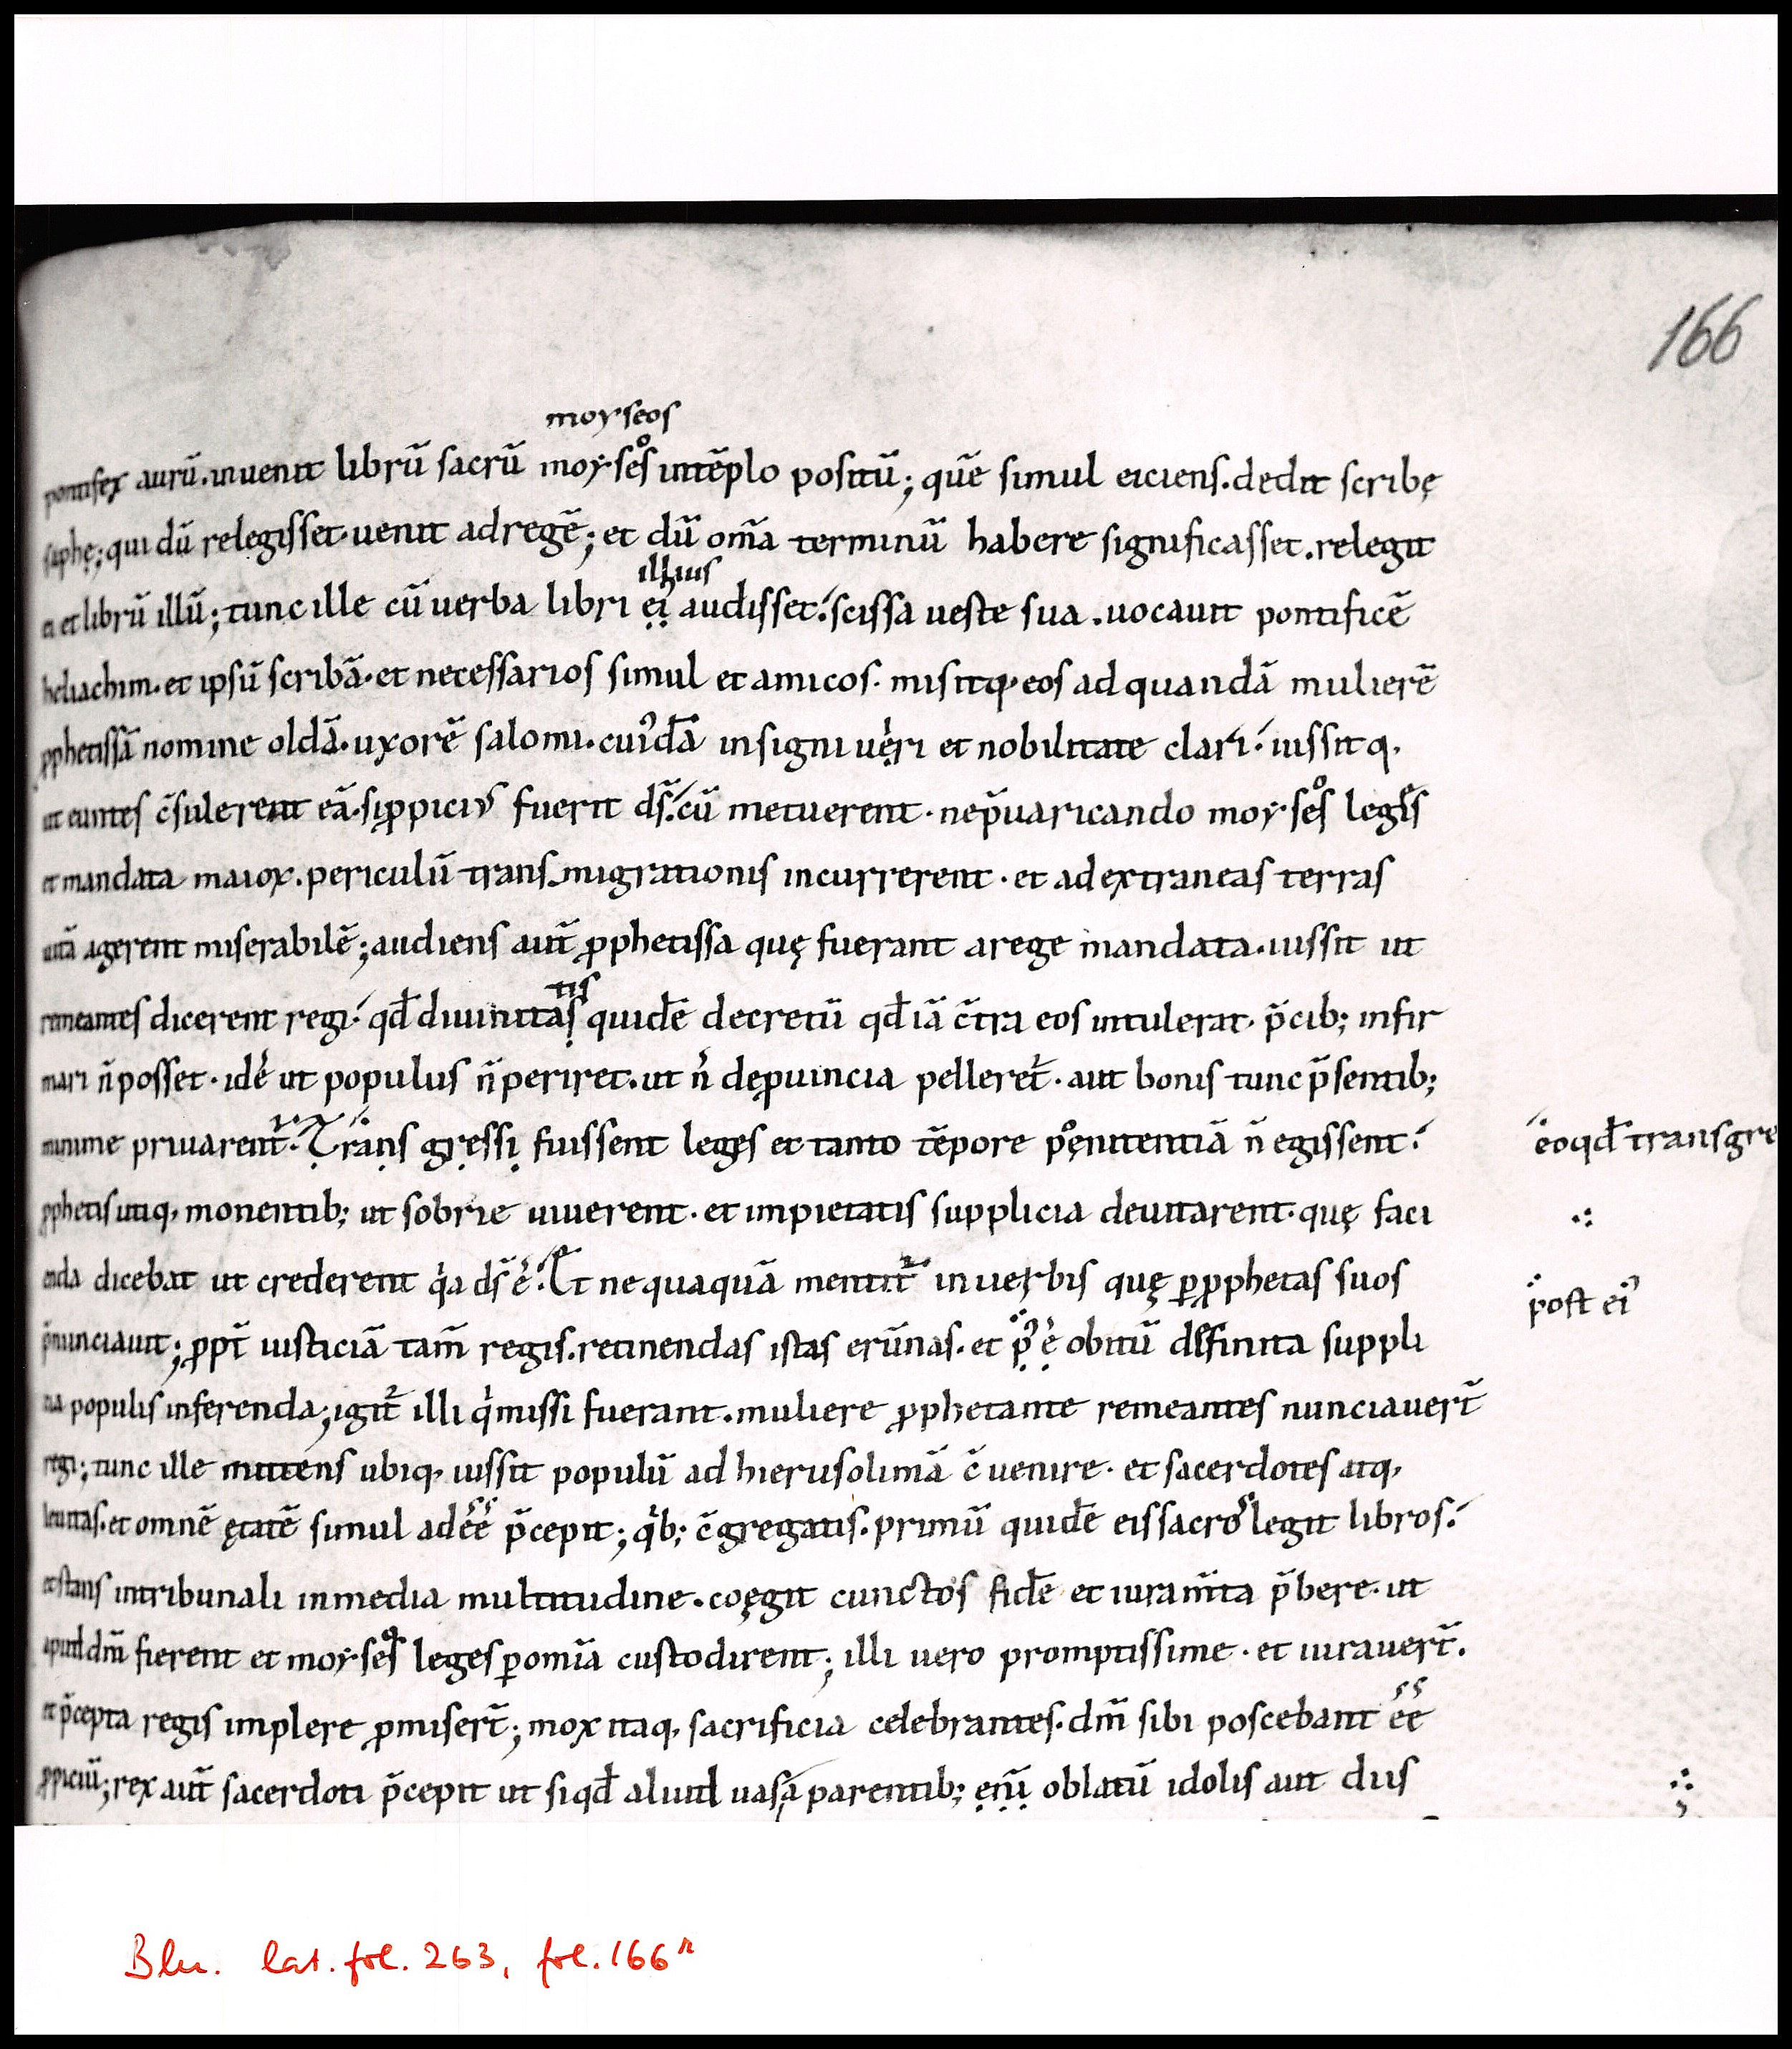 166
moyseos
pontifex aurū. inuenit librū sacrū moyseos intēplo positū; quē simul eiciens. dedit scribę
saphę; qui dū relegisset. uenit ad regē; et dū om̄a terminū habere significasset. relegit
illius
ei et librū illū; tunc ille cū uerba libri ei' audisset. scissa ueste sua. uocauit pontificē
heliachim. et ipsū scribā. et necessarios simul et amicos. misitq; eos ad quandā mulierē
ꝓphetissā nomine oldā. uxorē salomi. cui'dā insigni uęri et nobilitate clari. iussitq;
ut euntes c̄sulerent eā. si ꝓpicius fuerit ds̄. cū metuerent. ne p̄uaricando moyseos legis
et mandata maioꝝ. periculū transmigrationis incurrerent. et ad extraneas terras
uitā agerent miserabilē; audiens aut̄ ꝓphetissa quę fuerant a rege mandata. iussit ut
tis
remeantes dicerent regi. qđ diuinitas quidē decretū qđ iā c̄tra eos intulerat. p̄cib; infir
mari n̄ posset. idē ut populus n̄ periret. ut n̄ de ꝓuincia pelleret᷑. aut bonis tunc p̄sentib;
minime priuarent᷑. Trans gressi fuissent leges et tanto tēpore pęnitentiā n̄ egissent.
eoqđ transgre
ꝓphetis utiq; monentib; ut sobrie uiuerent. et impietatis supplicia deuitarent. quę faci
enda dicebat ut crederent qⁱa ds̄ ē. Et nequaquā mentit᷑ in uerbis quę ꝑ ꝓphetas suos
post ei'
p̄nunciauit; ꝓpt̄ iusticiā tam̄ regis. retinendas istas erūnas. et p' ē obitū diffinita suppli
cia populis inferenda; igit᷑ illi qⁱ missi fuerant. muliere ꝓphetante remeantes nunciauer̄t
regi; tunc ille mittens ubiq; iussit populū ad hierusolimā c̄uenire. et sacerdotes atq;
leuitas. et omnē ętatē simul adēē p̄cepit; qⁱb; c̄gregatis. primū quidē eis sacros legit libros.
et stans in tribunali in media multitudine. coęgit cunctos fidē et iuram̄ta p̄bere. ut
apud dm̄ fierent et moyseos leges ꝑ omīa custodirent; illi uero promptissime. et iurauer̄t.
et p̄cepta regis implere ꝓmiser̄t; mox itaq; sacrificia celebrantes. dm̄ sibi poscebant ēē
ꝓpiciū; rex aut̄ sacerdoti p̄cepit ut siqđ aliud uasa parentib; eriū oblatū idolis aut diis
Bln. lat. fol. 263, fol. 166ʳ